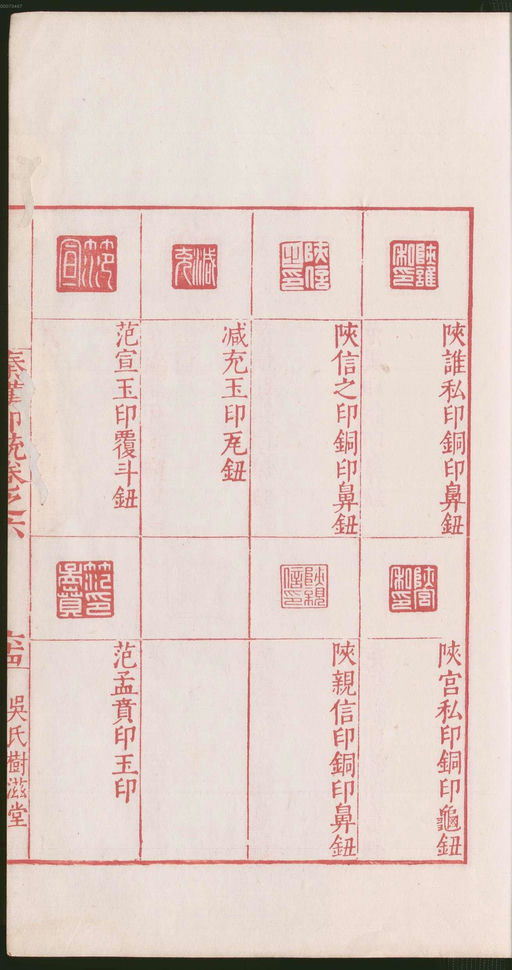 陝誰私印銅印鼻鈕
陝宫私印銅印龜鈕
陝信之印銅印鼻鈕
陝親信印銅印鼻鈕
减充玉印瓦鈕
范宣玉印覆斗鈕
范孟賁印玉印
秦漢印統卷之六
吳氏樹滋堂
00073467